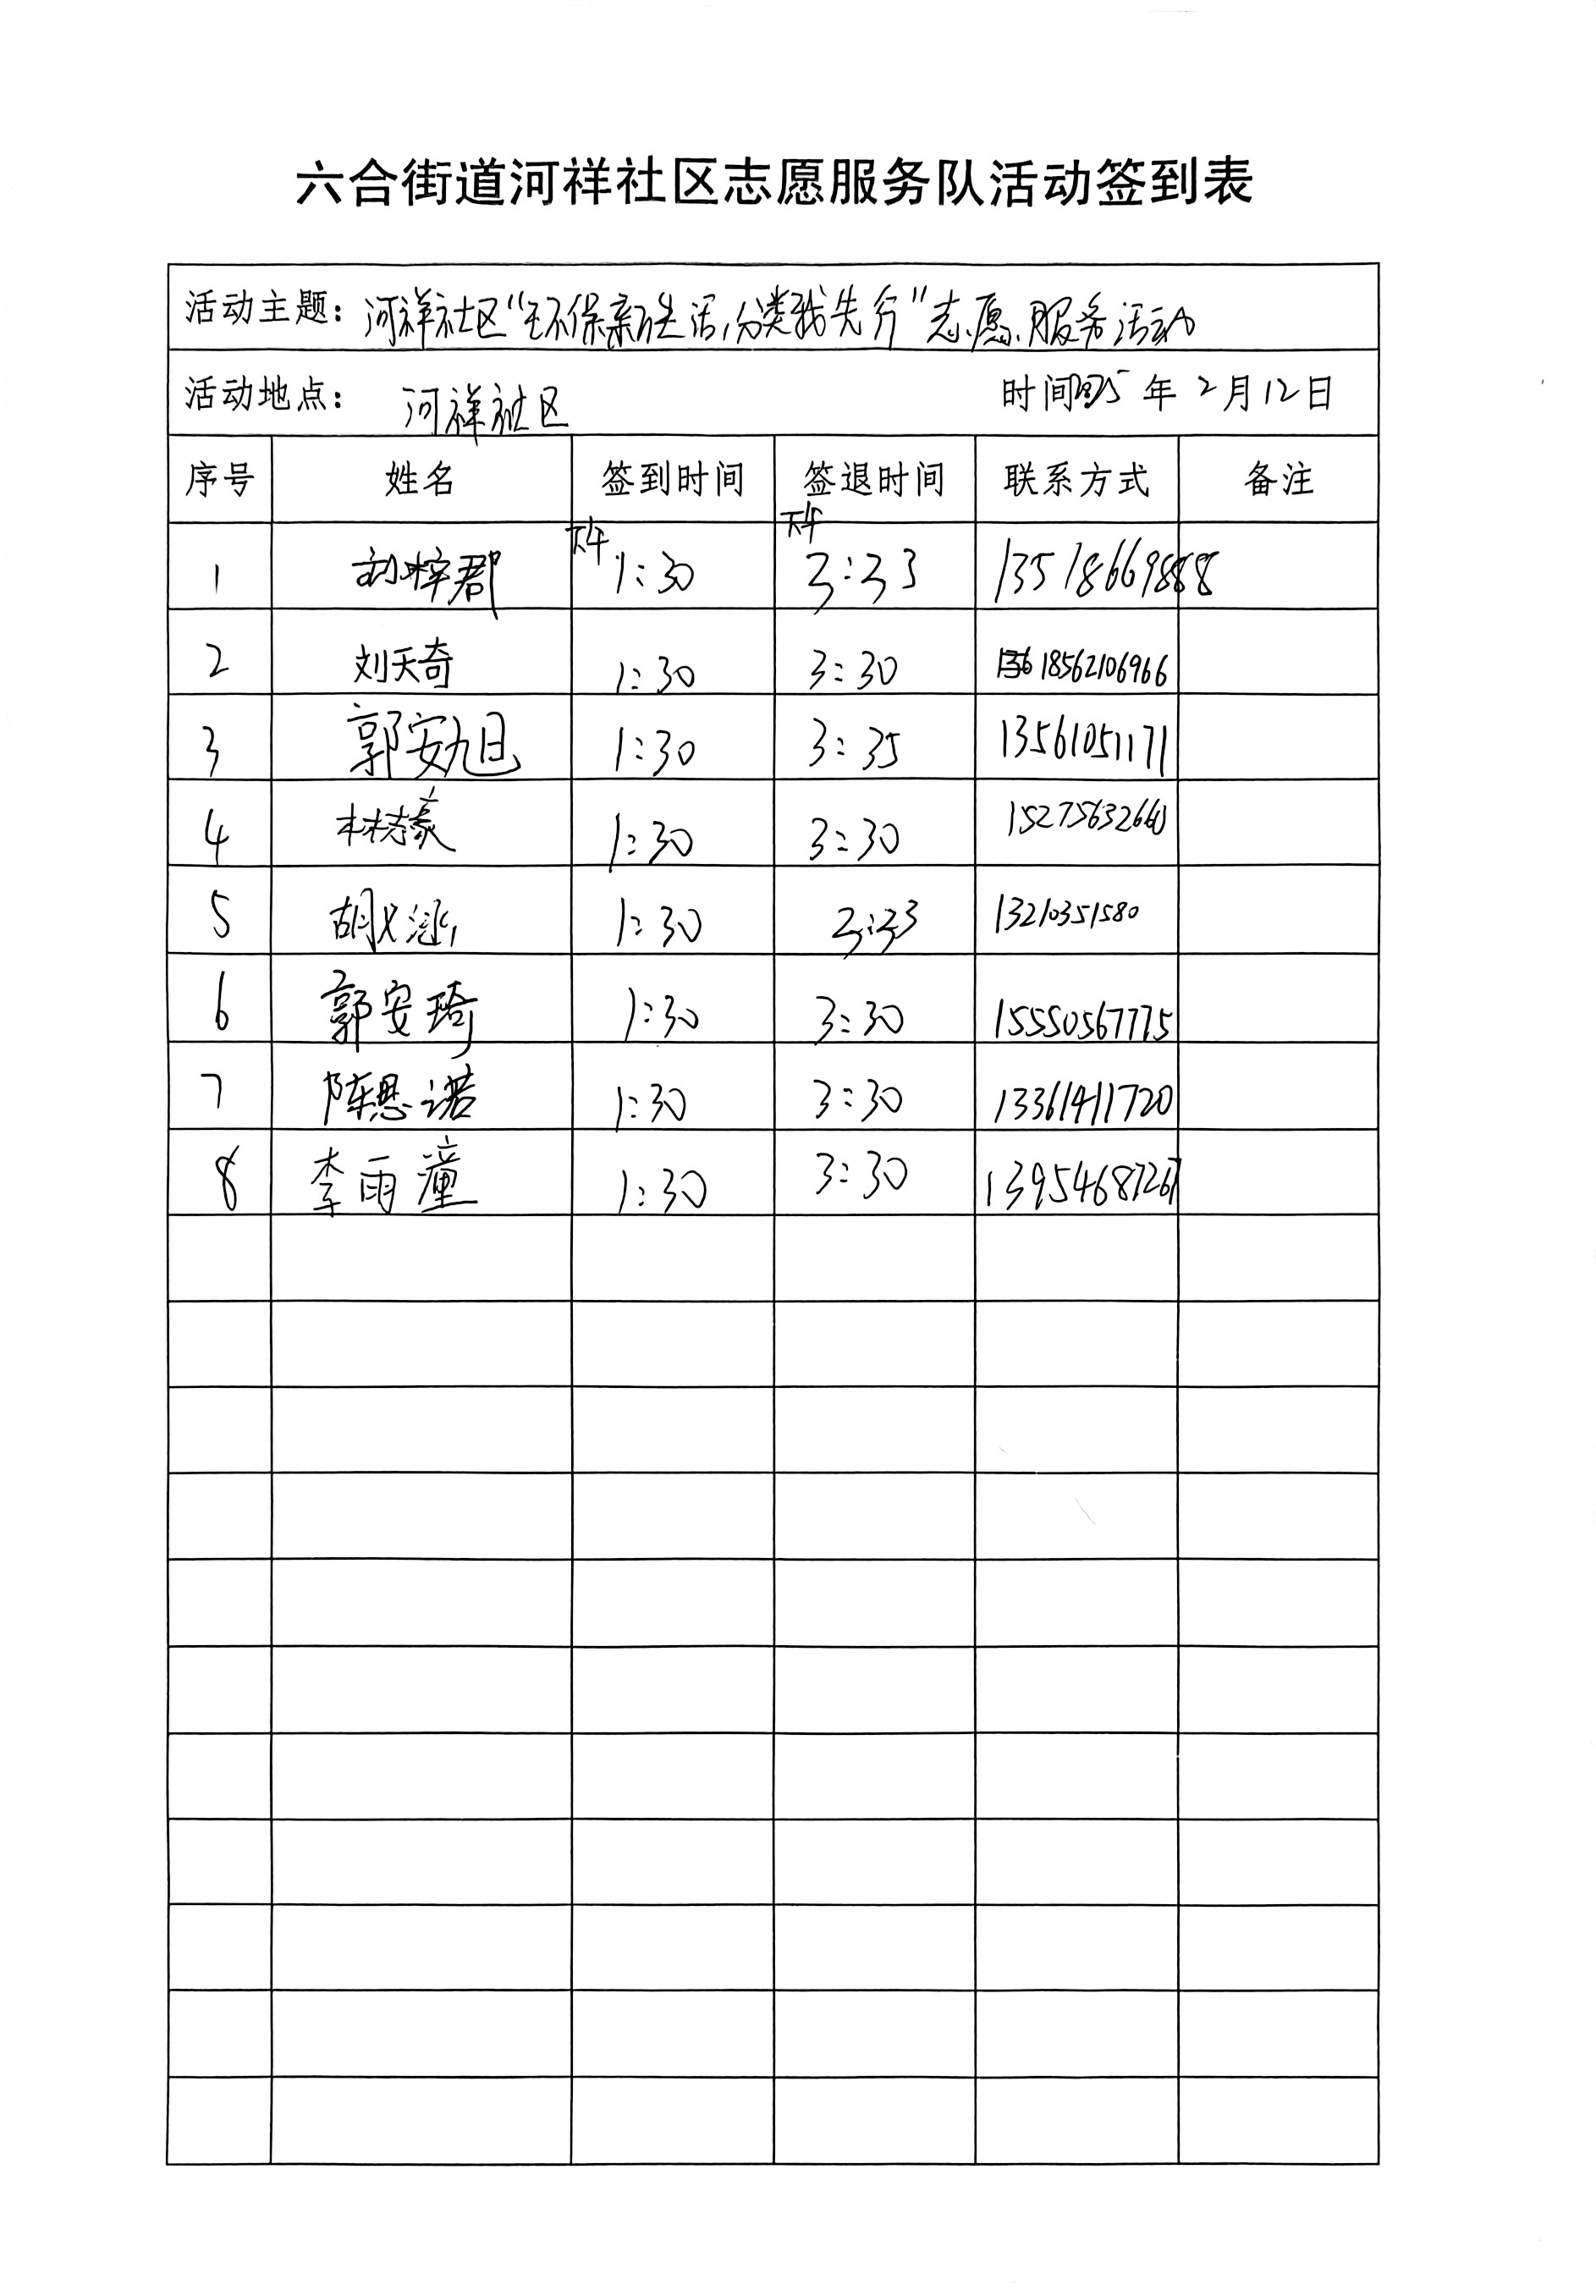 六合街道河祥社区志愿服务队活动签到表
活动主题：河祥社区“环保新生活,分类我先行”志愿服务活动
活动地点：河祥社区 时间2025年2月12日
序号 姓名 签到时间 签退时间 联系方式 备注
1 刘梓郡 下午1:30 下午3:33 13518669888
2 刘天奇 1:30 3:30 18562106966
3 郭安旭 1:30 3:35 13561051171
4 林志豪 1:30 3:30 15275632660
5 胡义涵 1:30 3:33 13210351580
6 郭安琦 1:30 3:30 15550567775
7 陈思诺 1:30 3:30 13361411720
8 李雨潼 1:30 3:30 13954687267